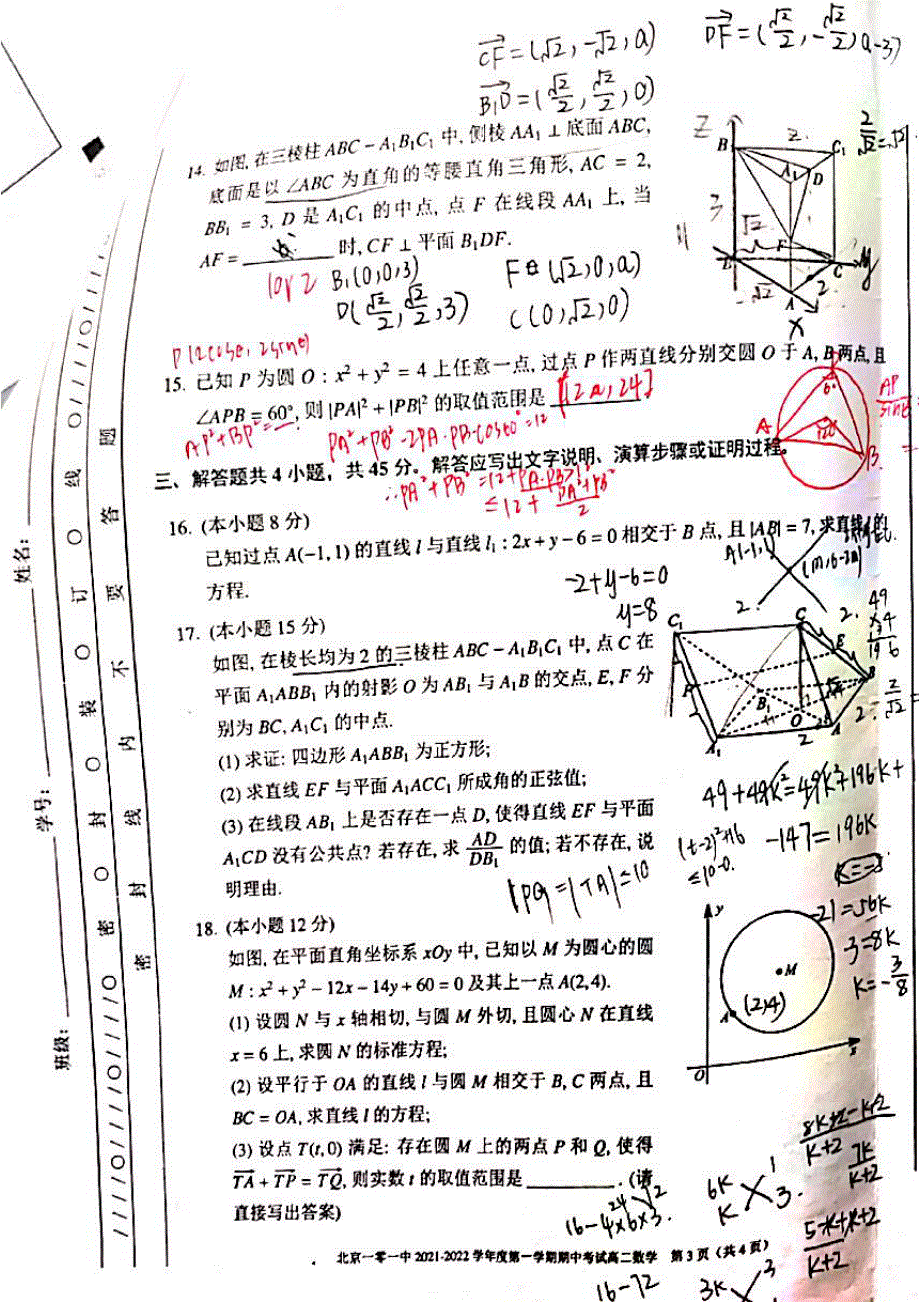 CF = (√2, -√2, a)
DF = (√2/2, -√2/2, a-3)
B₁D = (√2/2, √2/2, 0)
14. 如图, 在三棱柱 ABC − A₁B₁C₁ 中, 侧棱 AA₁ ⊥ 底面 ABC,
底面是以 ∠ABC 为直角的等腰直角三角形, AC = 2,
BB₁ = 3, D 是 A₁C₁ 的中点, 点 F 在线段 AA₁ 上, 当
AF = ______ 时, CF ⊥ 平面 B₁DF.
1or 2
B₁(0,0,3)
F (√2,0,a)
D(√2/2, √2/2, 3)
C(0,√2,0)
P(2cosθ, 2sinθ)
15. 已知 P 为圆 O : x² + y² = 4 上任意一点, 过点 P 作两直线分别交圆 O 于 A, B 两点, 且
∠APB = 60°, 则 |PA|² + |PB|² 的取值范围是
AP²+BP²=
PA²+PB²-2PA·PBcos60°=12
三、解答题共 4 小题，共 45 分。解答应写出文字说明、演算步骤或证明过程。
∴PA²+PB²=12+PA·PB>12
≤12+ (PA²+PB²)/2
16. (本小题 8 分)
已知过点 A(−1,1) 的直线 l 与直线 l₁ : 2x + y − 6 = 0 相交于 B 点, 且 |AB| = 7, 求直线 l 的
方程.
-2+y-6=0
y=8
A(-1,1)
(m,6-2m)
17. (本小题 15 分)
如图, 在棱长均为 2 的三棱柱 ABC − A₁B₁C₁ 中, 点 C 在
平面 A₁ABB₁ 内的射影 O 为 AB₁ 与 A₁B 的交点, E, F 分
别为 BC, A₁C₁ 的中点.
(1) 求证: 四边形 A₁ABB₁ 为正方形;
(2) 求直线 EF 与平面 A₁ACC₁ 所成角的正弦值;
(3) 在线段 AB₁ 上是否存在一点 D, 使得直线 EF 与平面
A₁CD 没有公共点? 若存在, 求 AD/DB₁ 的值; 若不存在, 说
明理由.
49
×4
196
49+49k²=49k²+196k+
-147=196k
(t-2)²+16
≤100
|PQ|=|TA|≤10
-21=56k
-3=8k
k=-3/8
18. (本小题 12 分)
如图, 在平面直角坐标系 xOy 中, 已知以 M 为圆心的圆
M : x² + y² − 12x − 14y + 60 = 0 及其上一点 A(2,4).
(1) 设圆 N 与 x 轴相切, 与圆 M 外切, 且圆心 N 在直线
x = 6 上, 求圆 N 的标准方程;
(2) 设平行于 OA 的直线 l 与圆 M 相交于 B, C 两点, 且
BC = OA, 求直线 l 的方程;
(3) 设点 T(t,0) 满足: 存在圆 M 上的两点 P 和 Q, 使得
TA + TP = TQ, 则实数 t 的取值范围是 ______. (请
直接写出答案)
y
M
A
(2,4)
O
x
7k/k+2
6k 1
k 3.
16-4×6×3.
24 72
北京一零一中 2021-2022 学年度第一学期期中考试高二数学 第 3 页（共 4 页）
16-72
3k 3
姓名:
学号:
班级:
密 封 装 订 线
密 封 线 内 不 要 答 题